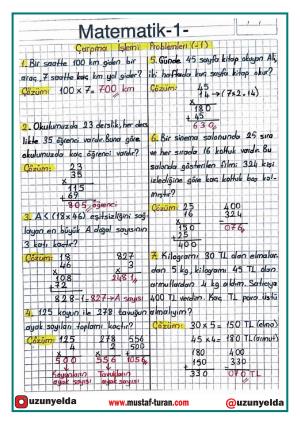 Matematik-1-
Çarpma İşlemi Problemleri (-1)
1. Bir saatte 100 km giden bir
araç, 7 saatte kaç km yol gider?
Çözüm: 100 x 7 = 700 km
2. Okulumuzda 23 derslik, her ders
likte 35 öğrenci vardır. Buna göre
okulumuzda kaç öğrenci vardır?
Çözüm: 23
35
x
115
+ 69
805 öğrenci
3. A < (18x46) eşitsizliğini sağ-
layan en büyük A doğal sayısının
3 katı kaçtır?
Çözüm: 18 827
46 3
x x
108 2481
+ 72
828-1=827→A sayısı
4. 125 koyun ile 278 tavuğun
ayak sayıları toplamı kaçtır?
Çözüm: 125 278 556
4 2 500
x x +
500 556 1056
Koyunların Tavukların
ayak sayısı ayak sayısı
5. Günde 45 sayfa kitap okuyan Ali,
iki haftada kaç sayfa kitap okur?
Çözüm: 45
14 → (7x2=14)
x
180
+ 45
630
6. Bir sinema salonunda 25 sıra
ve her sırada 16 koltuk vardır. Bu
salonda gösterilen filmi 324 kişi
izlediğine göre kaç koltuk boş kal-
mıştır?
Çözüm: 25 400
16 324
x -
150 076
+ 25
400
7. Kilogramı 30 TL olan elmalar-
dan 5 kg, kilogramı 45 TL olan
armutlardan 4 kg aldım. Satıcıya
400 TL verdim. Kaç TL para üstü
almalıyım?
Çözüm: 30x5=150 TL (elma)
45x4=180 TL (armut)
180 400
150 330
+ -
330 070 TL
uzunyelda
www.mustaf-turan.com
@uzunyelda